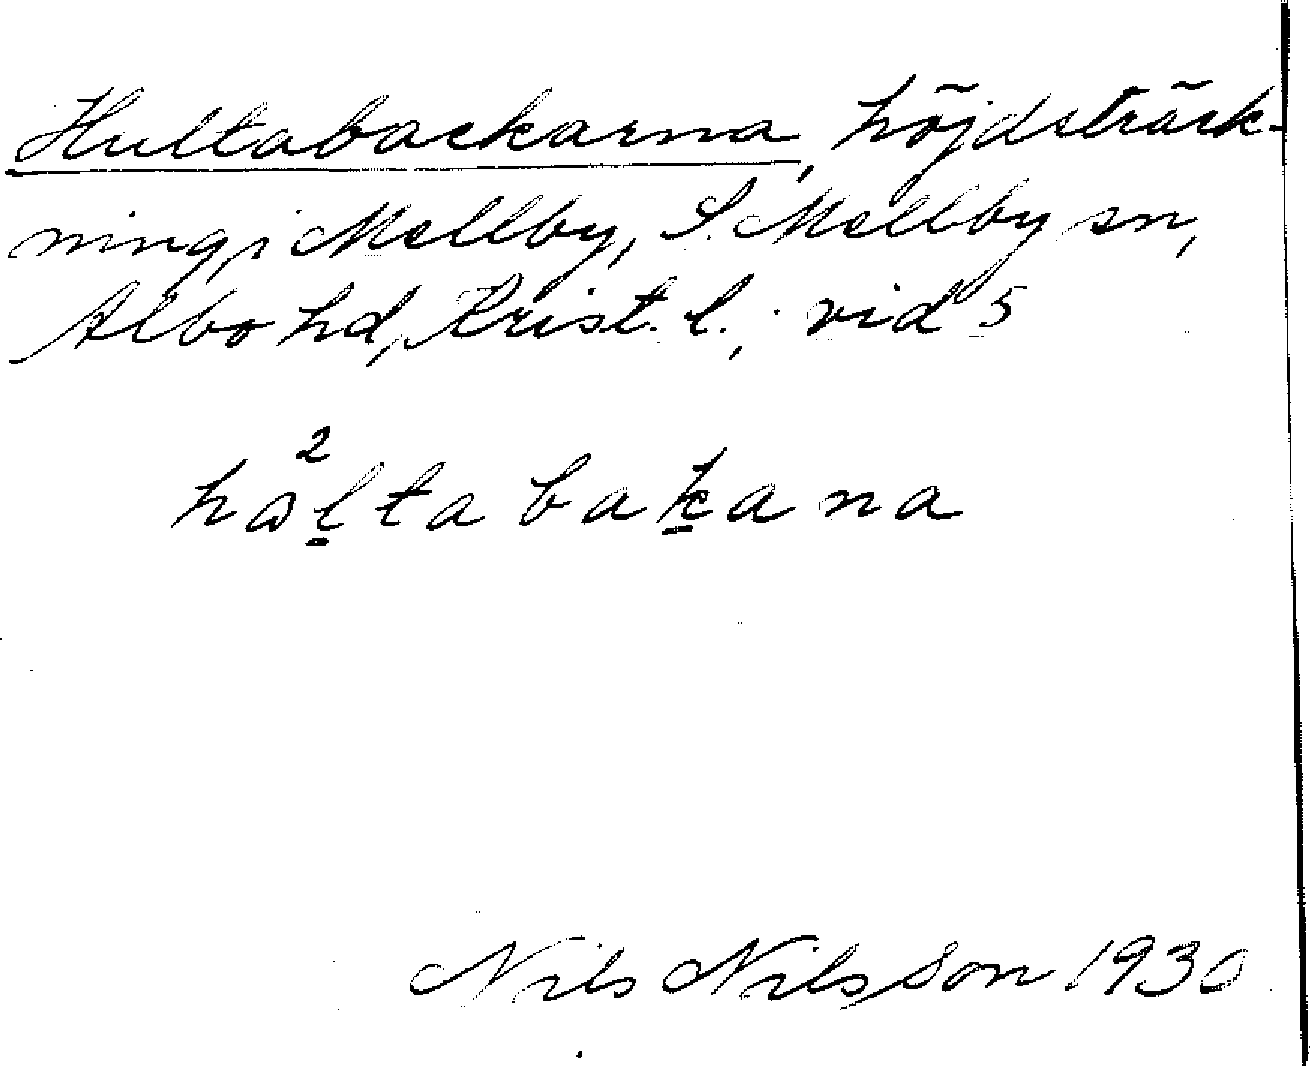 Hultabackarna, höjdsträck-
ning, i Mellby, S. Mellby sn,
Albo hd, Krist. l., vid 5
2
hɷl̠tabak̠ana
Nils Nilsson 1930